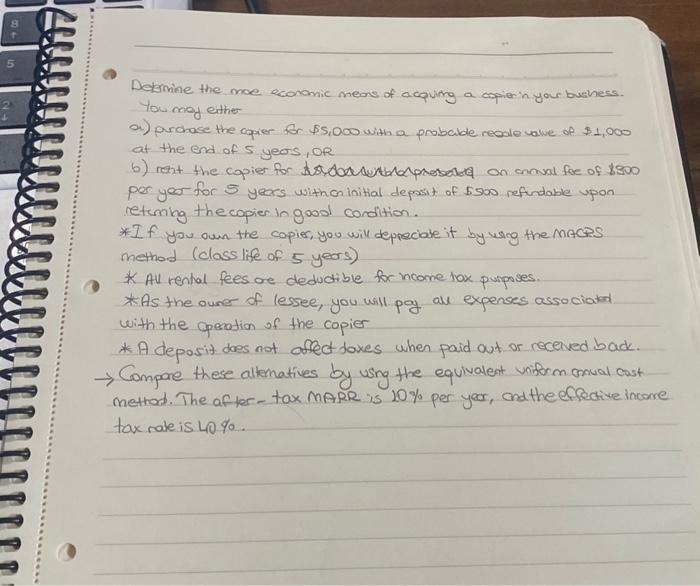 8
5
2
Determine the more economic means of acquiring a copier in your business.
You may either
a) purchase the copier for $5,000 with a probable resale value of $1,000
at the end of 5 years, OR
b) rent the copier for an annual fee of $900
per year for 5 years with an initial deposit of $500 refundable upon
returning the copier in good condition.
*If you own the copier, you will depreciate it by using the MACRS
method (class life of 5 years)
* All rental fees are deductible for income tax purposes.
*As the owner of lessee, you will pay all expenses associated
with the operation of the copier
* A deposit does not affect taxes when paid out or received back.
→ Compare these alternatives by using the equivalent uniform annual cost
method. The after-tax MARR is 10% per year, and the effective income
tax rate is 40%.